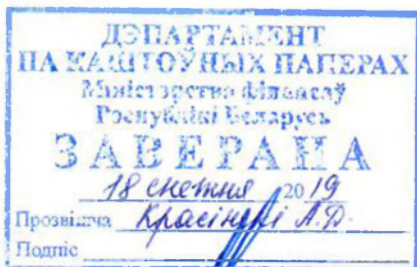 ДЭПАРТАМЕНТ
ПА КАШТОЎНЫХ ПАПЕРАХ
Міністэрства фінансаў
Рэспублікі Беларусь
ЗАВЕРАНА
18 снежня 2019
Прозвішча Красінскі А.Д.
Подпіс